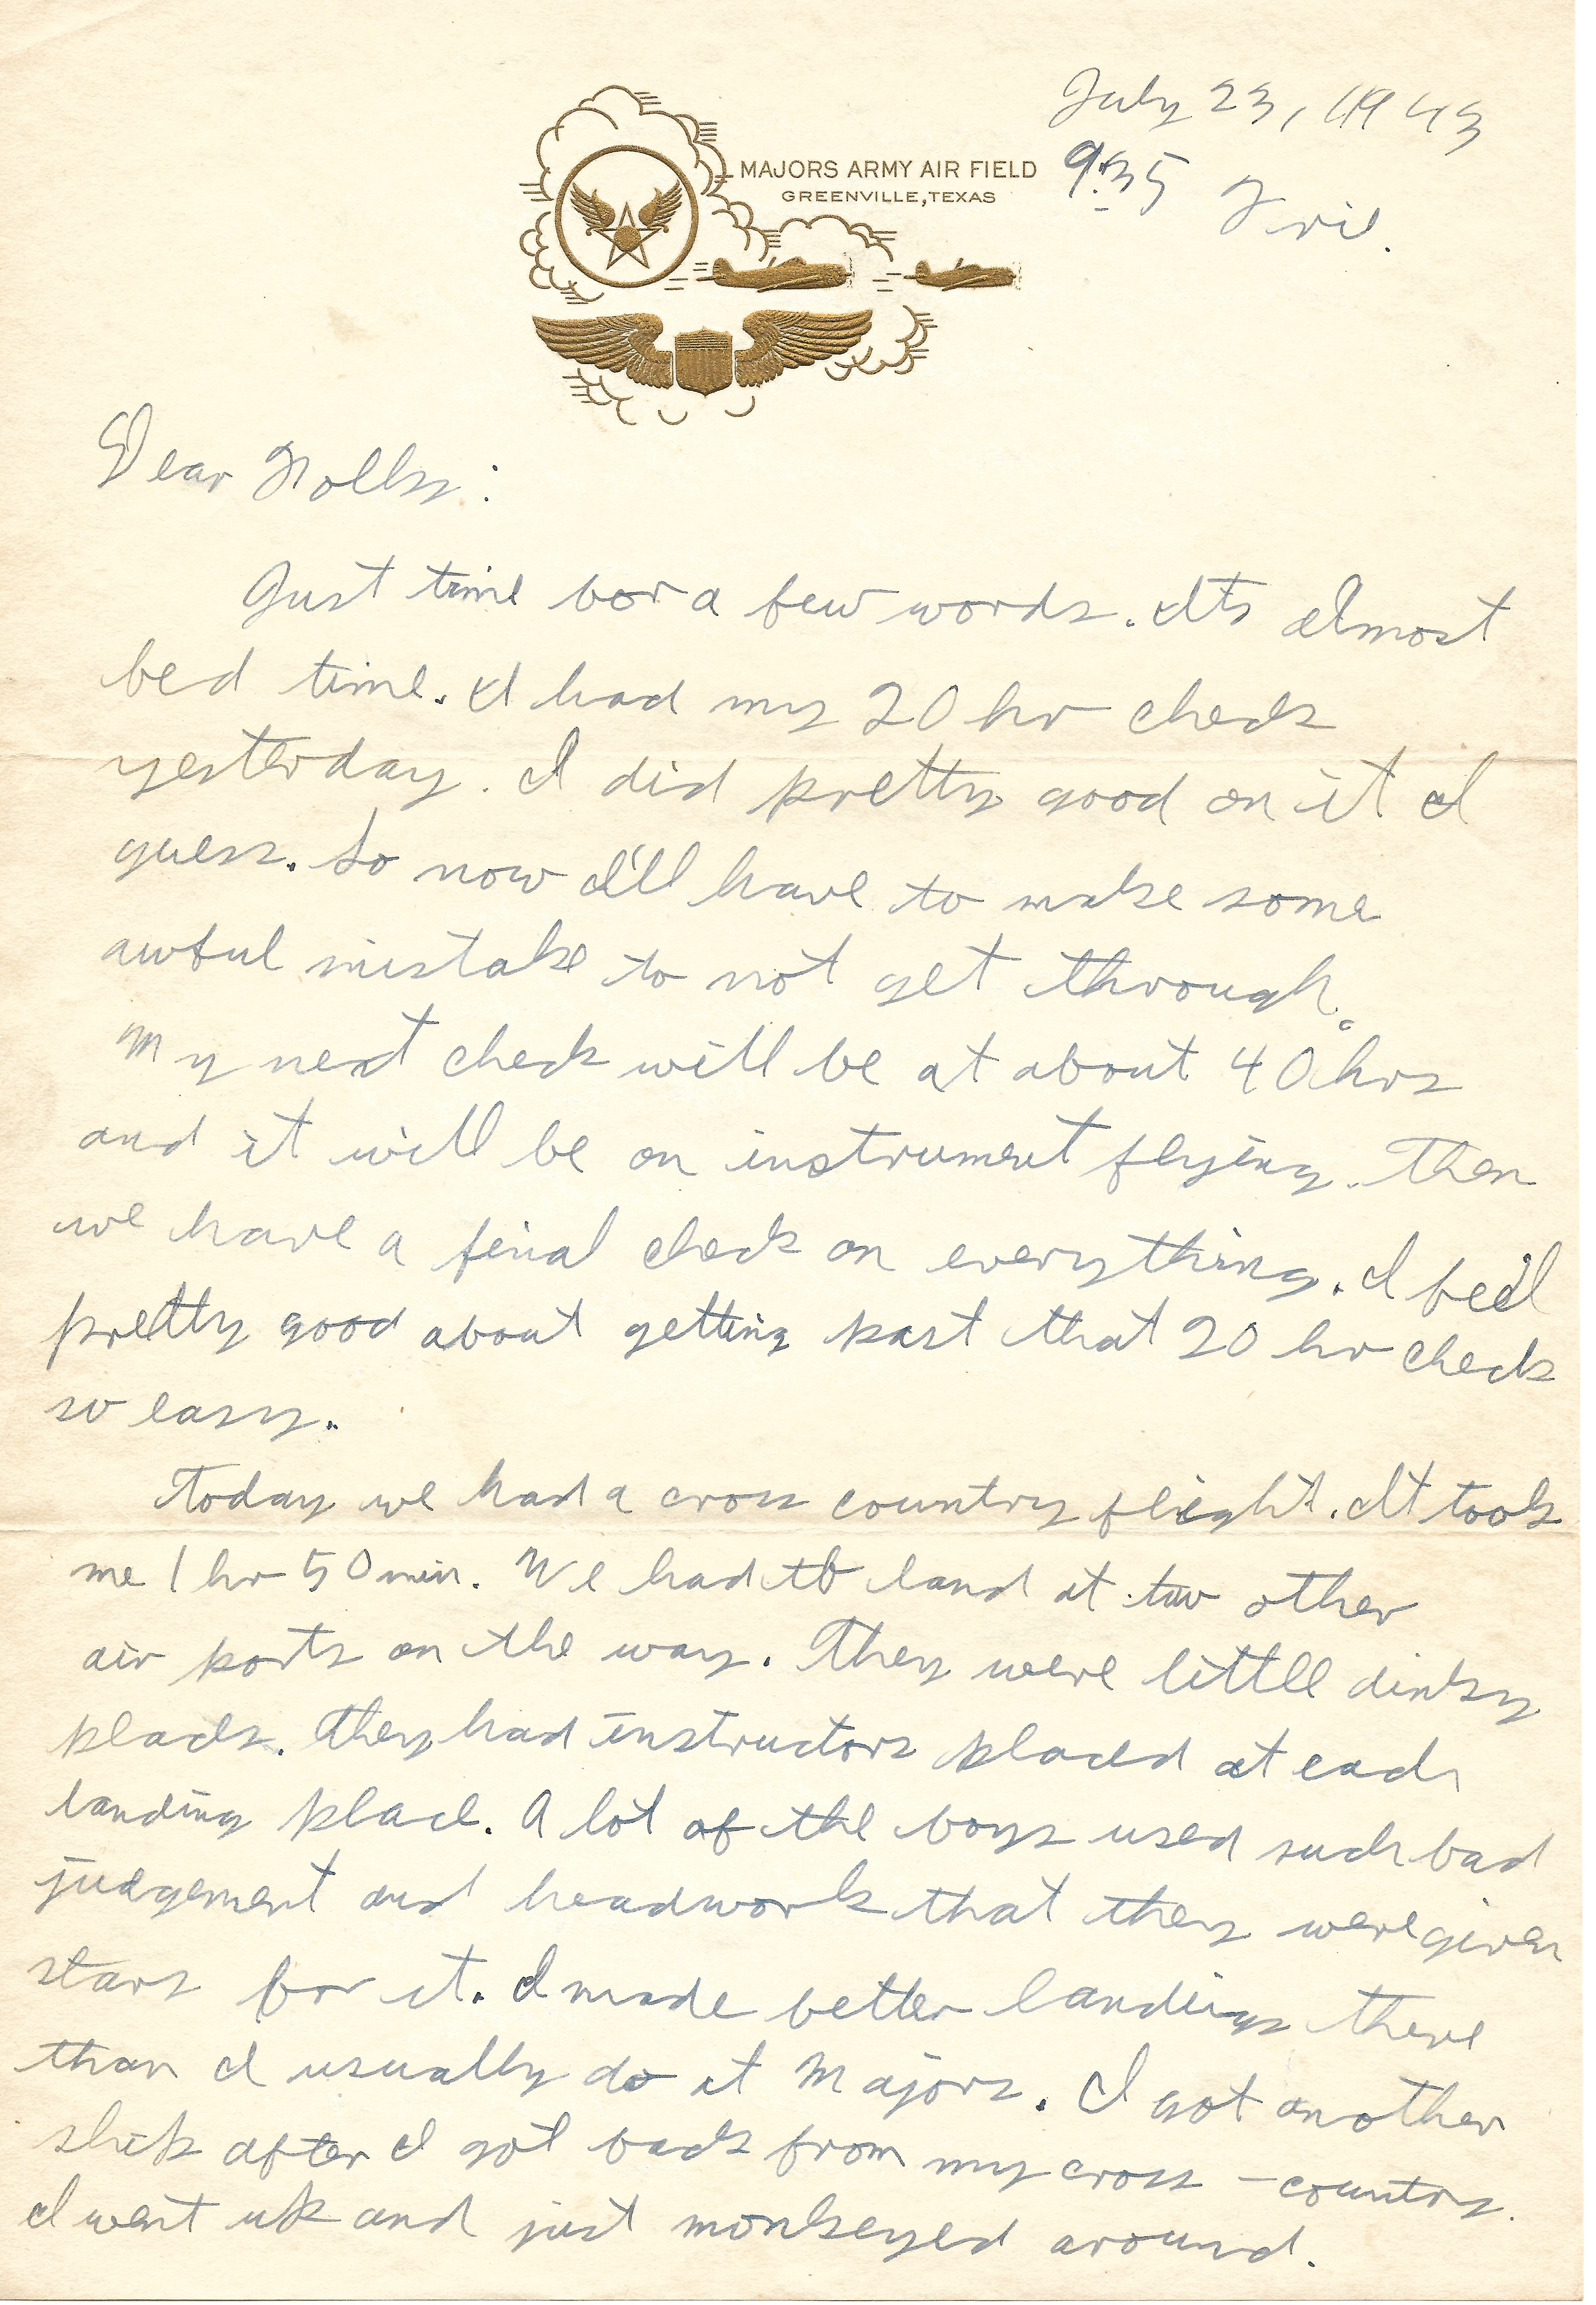 July 23, 1943
MAJORS ARMY AIR FIELD
GREENVILLE, TEXAS
9:35 Fri.
Dear Folks:
Just time for a few words. Its almost
bed time. I had my 20 hr check
yesterday. I did pretty good on it I
guess. So now I'll have to make some
awful mistake to not get through.
My next check will be at about 40 hrs
and it will be on instrument flying. Then
we have a final check on everything. I feel
pretty good about getting past that 20 hr check
so easy.
Today we had a cross country flight. It took
me 1 hr 50 min. We had to land at two other
air ports on the way. They were little dinky
places. They had instructors placed at each
landing place. A lot of the boys used such bad
judgement and headwork that they were given
stars for it. I made better landings there
than I usually do at Majors. I got another
ship after I got back from my cross-country.
I went up and just monkeyed around.